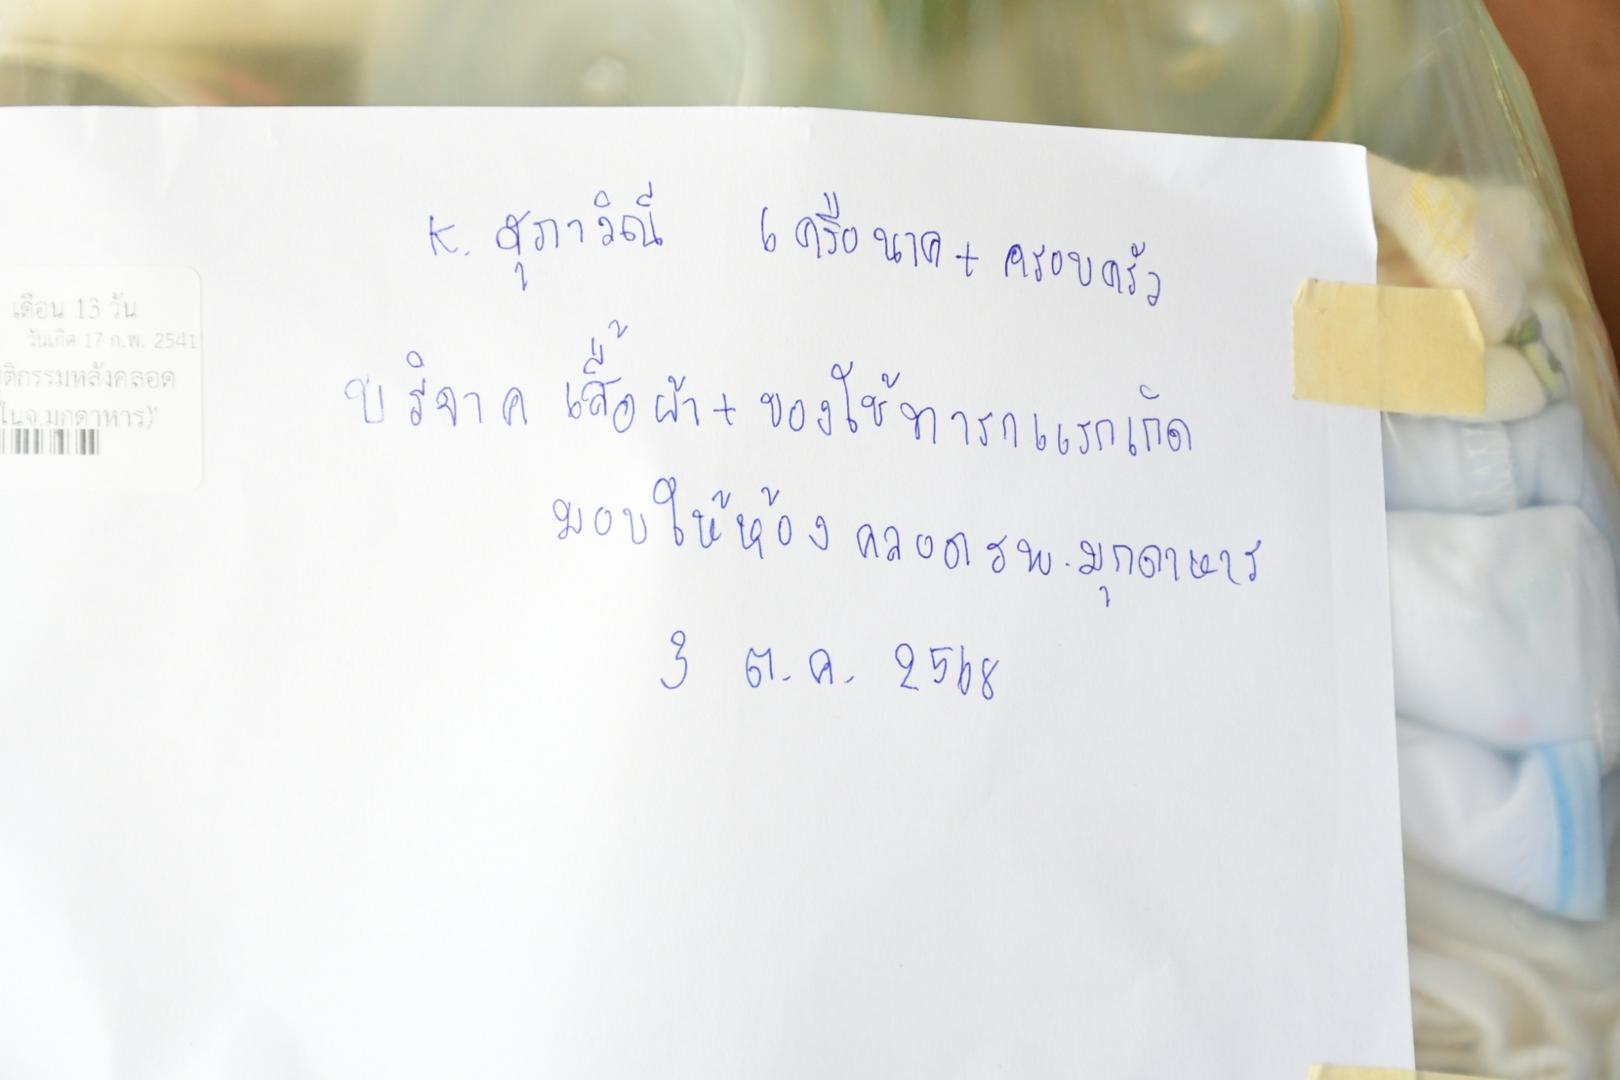 K. สุภาวิณี เครือนาค + ครอบครัว
บริจาค เสื้อผ้า + ของใช้ทารกแรกเกิด
มอบให้ห้องคลอด รพ.มุกดาหาร
3 ต.ค. 2568
เดือน 13 วัน
วันเกิด 17 ก.พ. 2541
ติกรรมหลังคลอด
ในจ.มุกดาหาร)